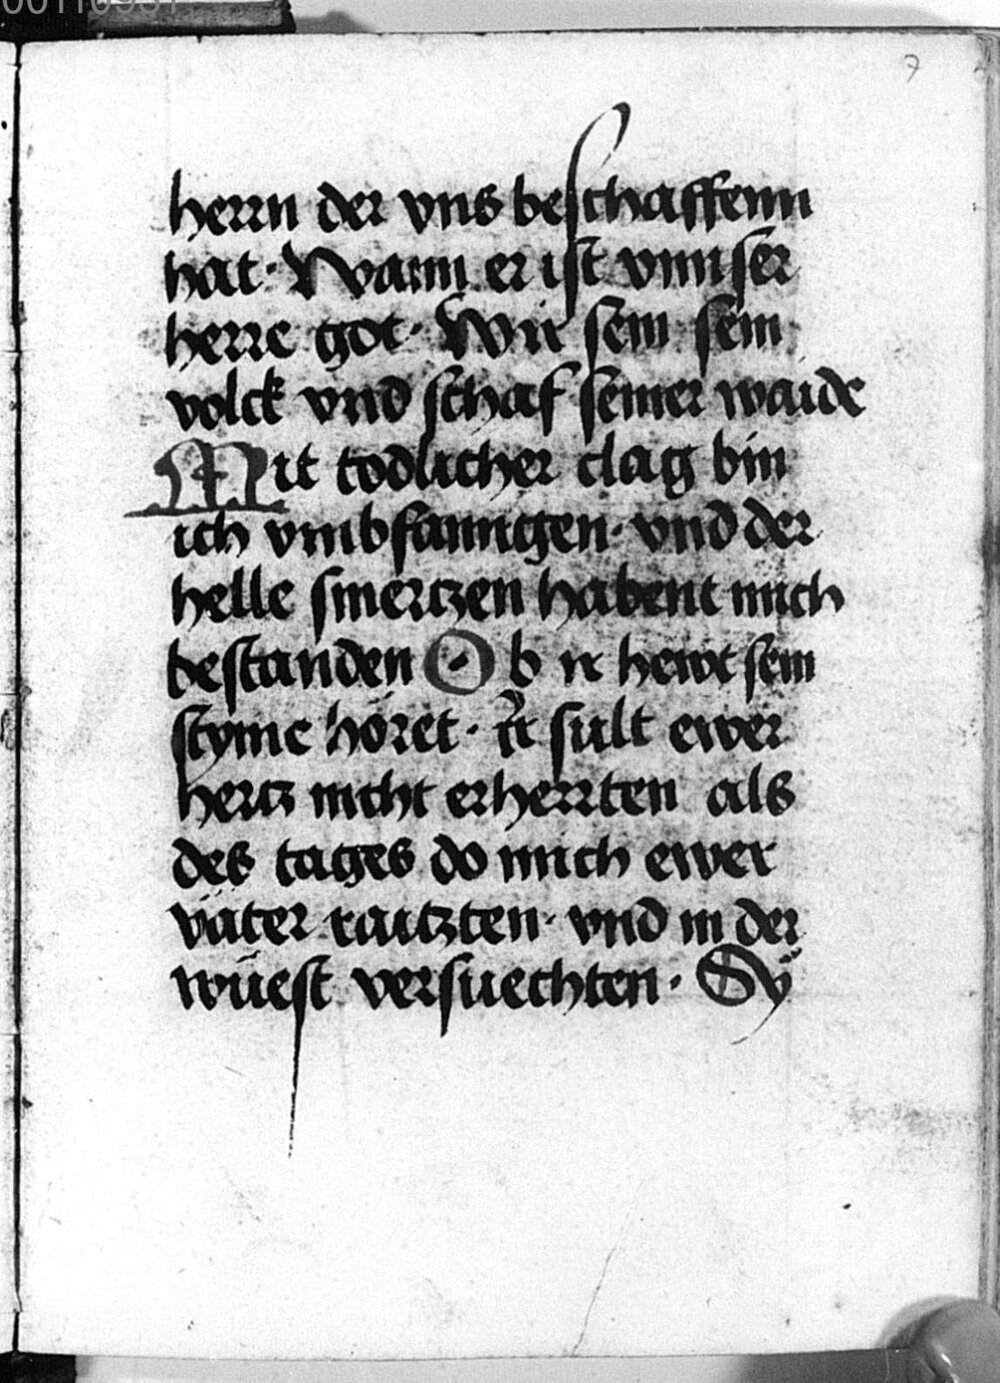 7
herrn der vns beschaffenn
hat · Wann er ist vnnser
herre got · Wir sein sein
volck vnd schaf seiner waide
Mit todlicher clag bin
ich vmbfanngen · vnd der
helle smertzen habent mich
bestanden Ob ir hewt sein
styme höret · ir sült ewer
hertz nicht erherrten als
des tages do mich ewer
väter raitzten · vnd in der
wüest versuechten · Sÿ